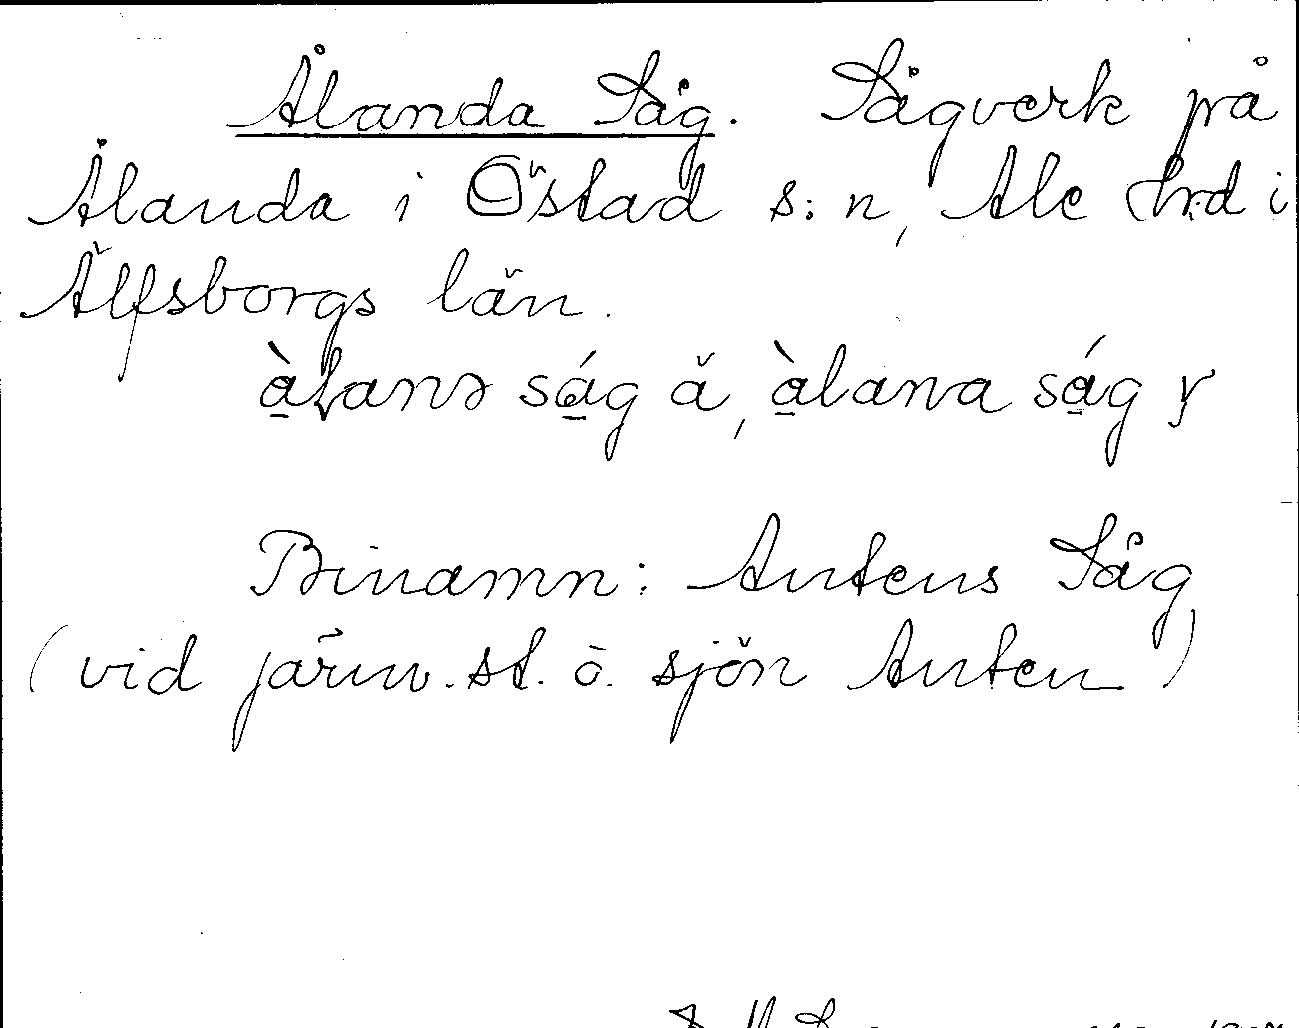 Ålanda Såg. Sågverk på
Ålanda i Östad s:n, Ale hrd i
Älfsborgs län.
à̱lanə sá̱g ä, à̱lana sá̱g y
Binamn: Antens Såg
(vid järnv.st. o. sjön Anten)